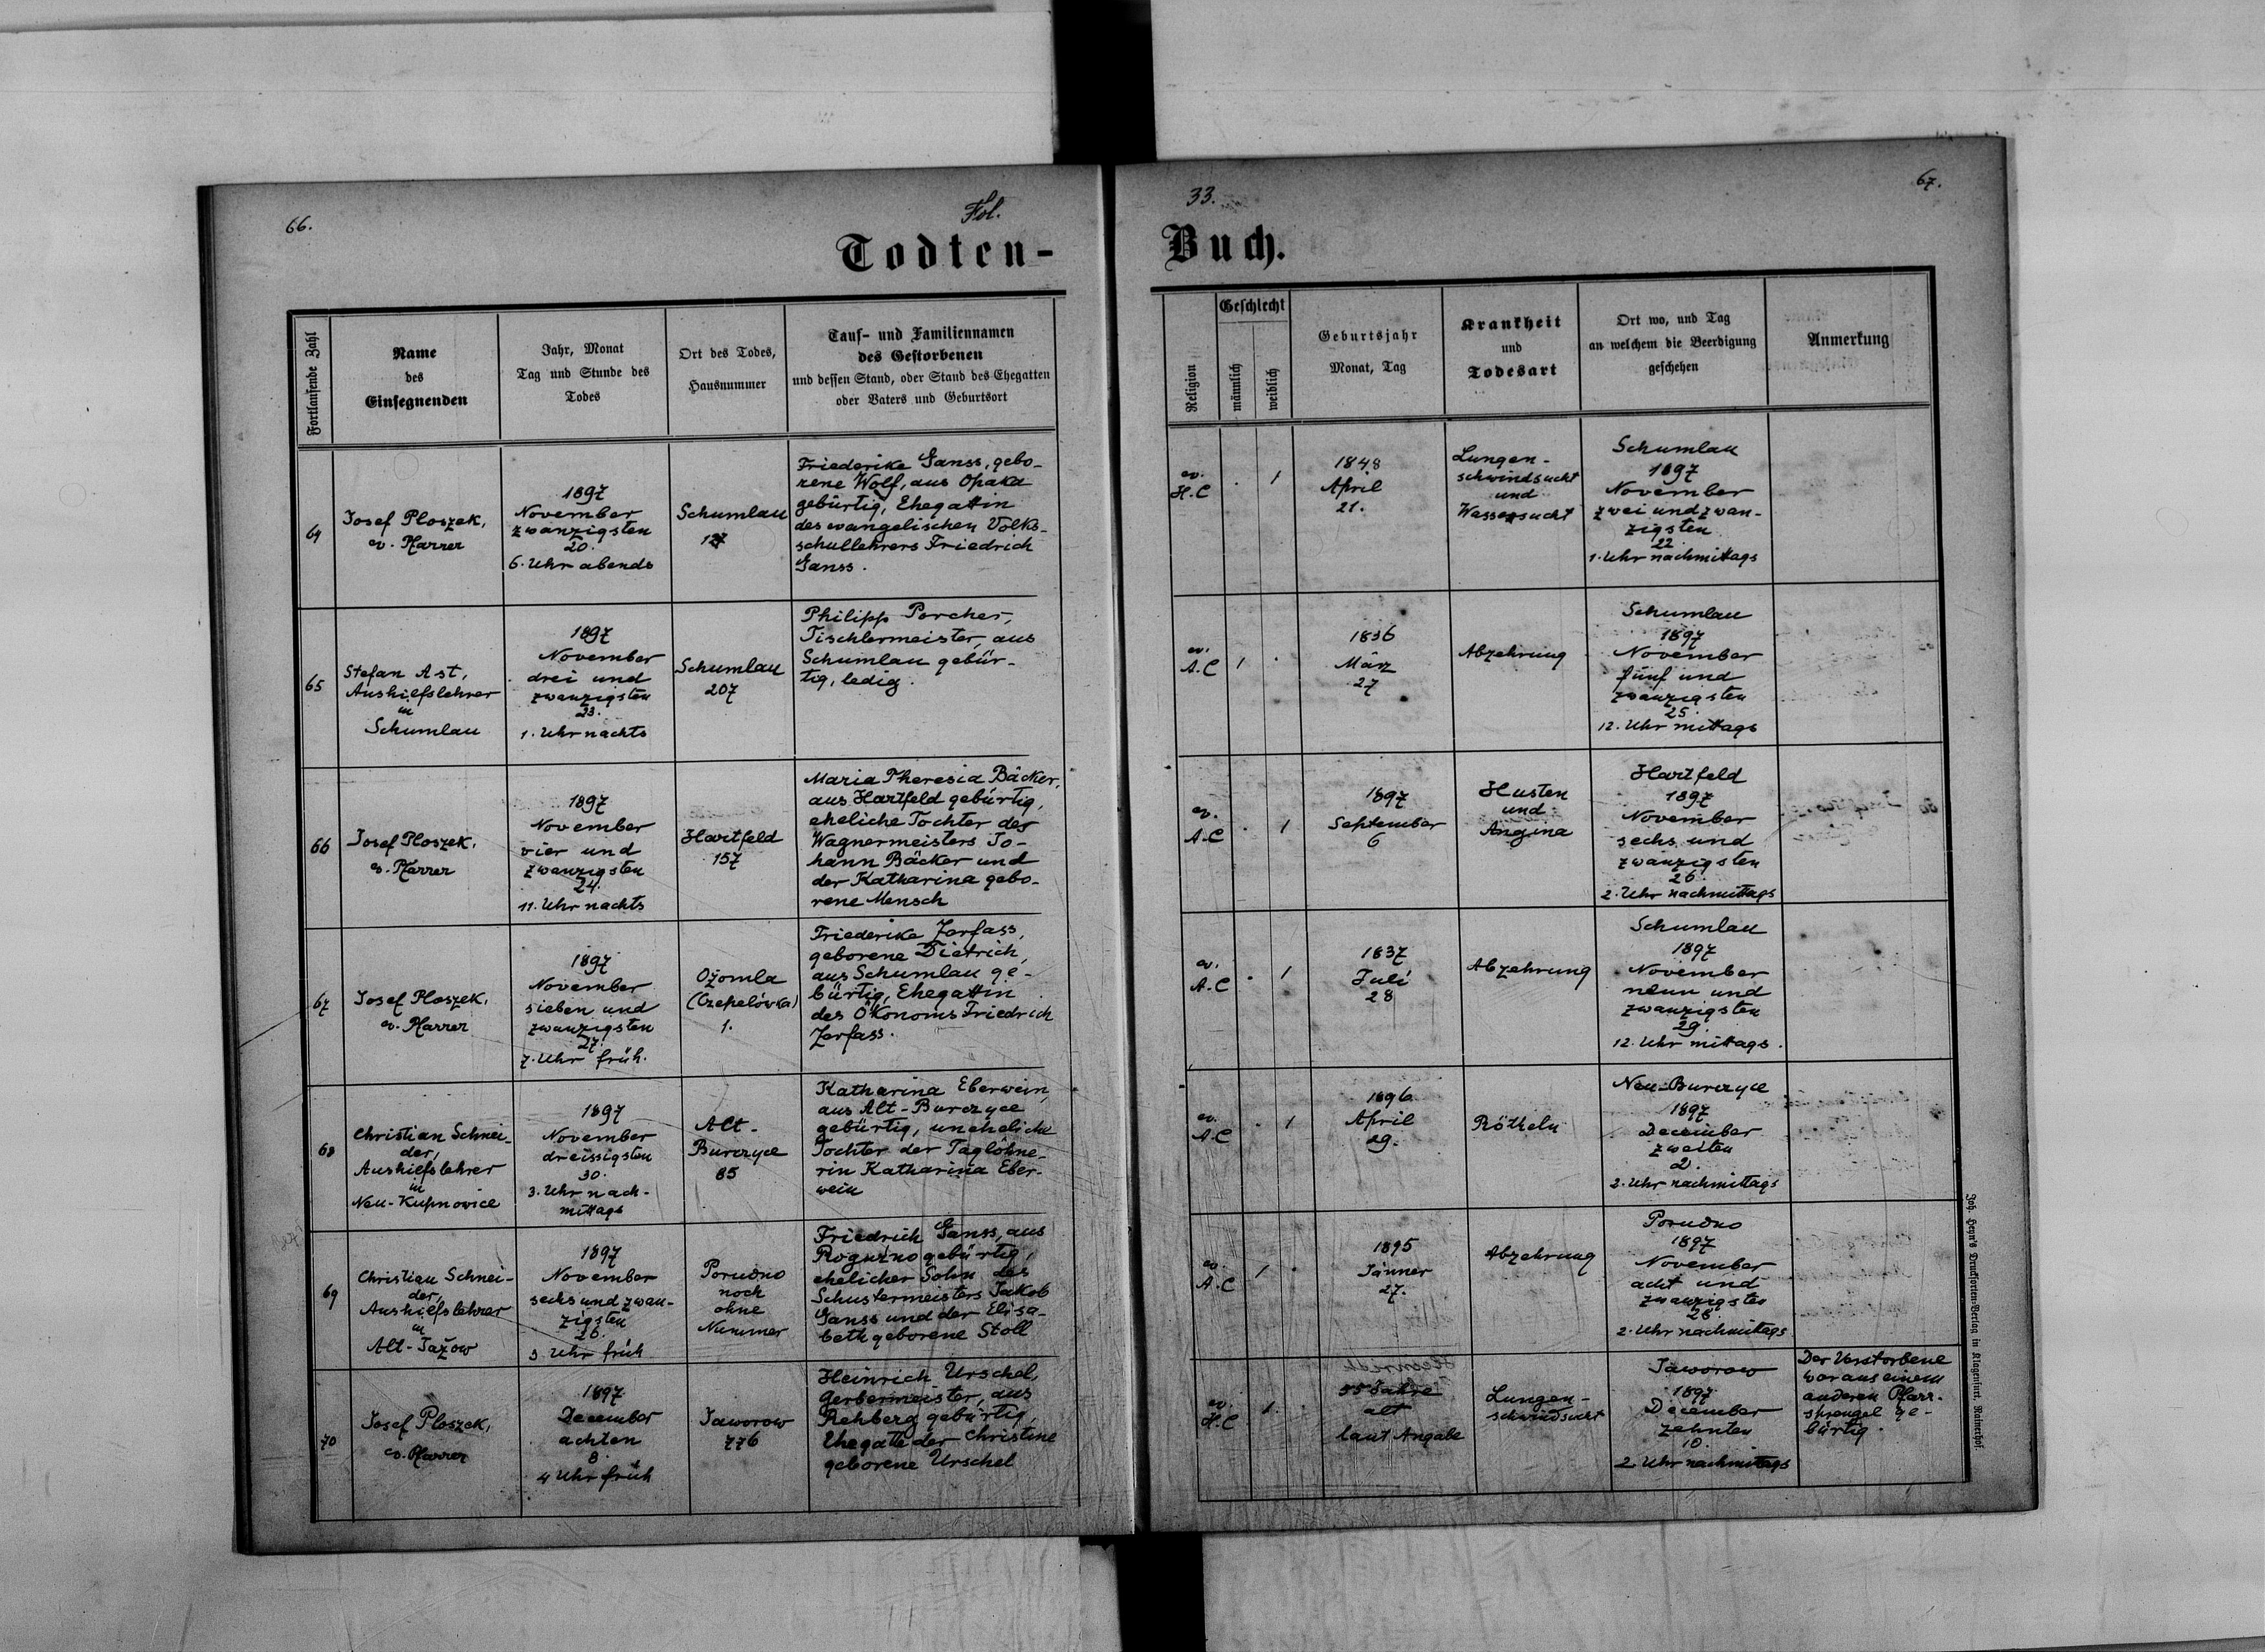 66.
Fol.
33.
67.
Todten-
Buch.
Fortlaufende Zahl
Name
des
Einsegnenden
Jahr, Monat
Tag und Stunde des
Todes
Ort des Todes,
Hausnummer
Tauf- und Familiennamen
des Gestorbenen
und dessen Stand, oder Stand des Ehegatten
oder Vaters und Geburtsort
Religion
Geschlecht
männlich
weiblich
Geburtsjahr
Monat, Tag
Krankheit
und
Todesart
Ort wo, und Tag
an welchem die Beerdigung
geschehen
Anmerkung
64
Josef Ploszek,
ev. Pfarrer
1897
November
zwanzigsten
20.
6. Uhr abends
Schumlau
Friederike Ganss, gebo-
rene Wolf, aus Opaka
gebürtig, Ehegattin
des evangelischen Volks-
schullehrers Friedrich
Ganss.
ev.
H.C
1
1848
April
21.
Lungen-
schwindsucht
und
Wassersucht
Schumlau
1897
November
zwei und zwan-
zigsten
22.
1. Uhr nachmittags
65
Stefan Ast,
Aushilfslehrer
in
Schumlau
1897
November
drei und
zwanzigsten
23.
1. Uhr nachts
Schumlau
207
Philipp Porcher,
Tischlermeister, aus
Schumlau gebür-
tig, ledig.
ev.
A.C
1
1836
März
27
Abzehrung
Schumlau
1897
November
fünf und
zwanzigsten
25.
12. Uhr mittags
66
Josef Ploszek,
ev. Pfarrer
1897
November
vier und
zwanzigsten
24.
11. Uhr nachts
Hartfeld
157
Maria Theresia Bäcker,
aus Hartfeld gebürtig,
eheliche Tochter des
Wagnermeisters Jo-
hann Bäcker und
der Katharina gebo-
rene Mensch
ev.
A.C
1
1897
September
6
Husten
und
Angina
Hartfeld
1897
November
sechs und
zwanzigsten
26.
2. Uhr nachmittags
67
Josef Ploszek,
ev. Pfarrer
1897
November
sieben und
zwanzigsten
27.
7. Uhr früh.
Ożomla
(Czepelówka)
1.
Friederike Zerfass,
geborene Dietrich,
aus Schumlau ge-
bürtig, Ehegattin
des Ökonoms Friedrich
Zerfass.
ev.
A.C
1
1837
Juli
28
Abzehrung
Schumlau
1897
November
neun und
zwanzigsten
29.
12. Uhr mittags.
68
Christian Schnei-
der,
Aushilfslehrer
in
Neu-Kupnowice
1897
November
dreissigsten
30.
3. Uhr nach-
mittags
Alt-
Burczyce
85
Katharina Eberwein,
aus Alt-Burczyce
gebürtig, uneheliche
Tochter der Taglöhne-
rin Katharina Eber-
wein
ev.
A.C
1
1896
April
29.
Rötheln
Neu-Burczyce
1897
December
zweiten
2.
2. Uhr nachmittags
69
Christian Schnei-
der,
Aushilfslehrer
in
Alt-Jażow
1897
November
sechs und zwan-
zigsten
26.
3 Uhr früh
Porudno
noch
ohne
Nummer
Friedrich Ganss, aus
Roguźno gebürtig,
ehelicher Sohn des
Schustermeisters Jakob
Ganss und der Elisa-
beth geborene Stoll
ev.
A.C
1
1895
Jänner
27.
Abzehrung
Porudno
1897
November
acht und
zwanzigsten
28.
2. Uhr nachmittags
70
Josef Ploszek,
ev. Pfarrer
1897
December
achten
8.
4 Uhr früh
Jaworow
776
Heinrich Urschel,
Gerbermeister, aus
Rehberg gebürtig,
Ehegatte der Christine
geborene Urschel
ev.
H.C
1.
55 Jahre
alt
laut Angabe
Lungen-
schwindsucht
Jaworow
1897
December
zehnten
10.
2. Uhr nachmittags
Der Verstorbene
war aus einem
anderen Pfarr-
sprengel ge-
bürtig.
Joh. Heyn's Drucksorten-Verlag in Klagenfurt, Rainerhof.